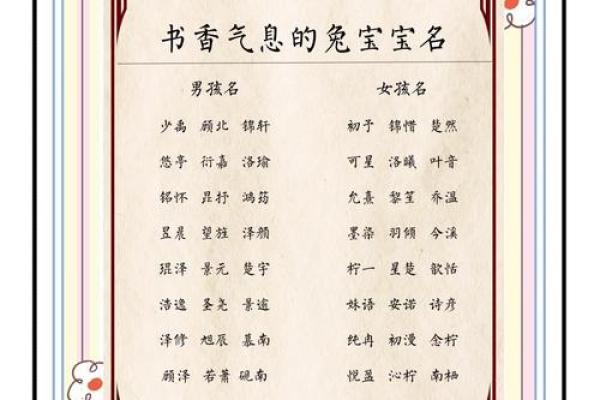 书香气息的兔宝宝名
男孩名 女孩名
少禹 顾北 锦轩 初予 锦惜 楚然
悠亭 衍嘉 洛瑜 可星 洛曦 叶音
铭怀 昙抒 鸿筠 允熹 黎笙 乔温
昱晨 望旌 泽颜 墨染 羽倾 今溪
琨泽 景元 楚宇 柠一 星楚 歆恬
浩逸 圣尧 景逾 妹语 安诺 诗彦
泽修 旭辰 慕南 纯冉 初漫 念柠
顾泽 若萧 砚南 悦盈 沁柠 南栖